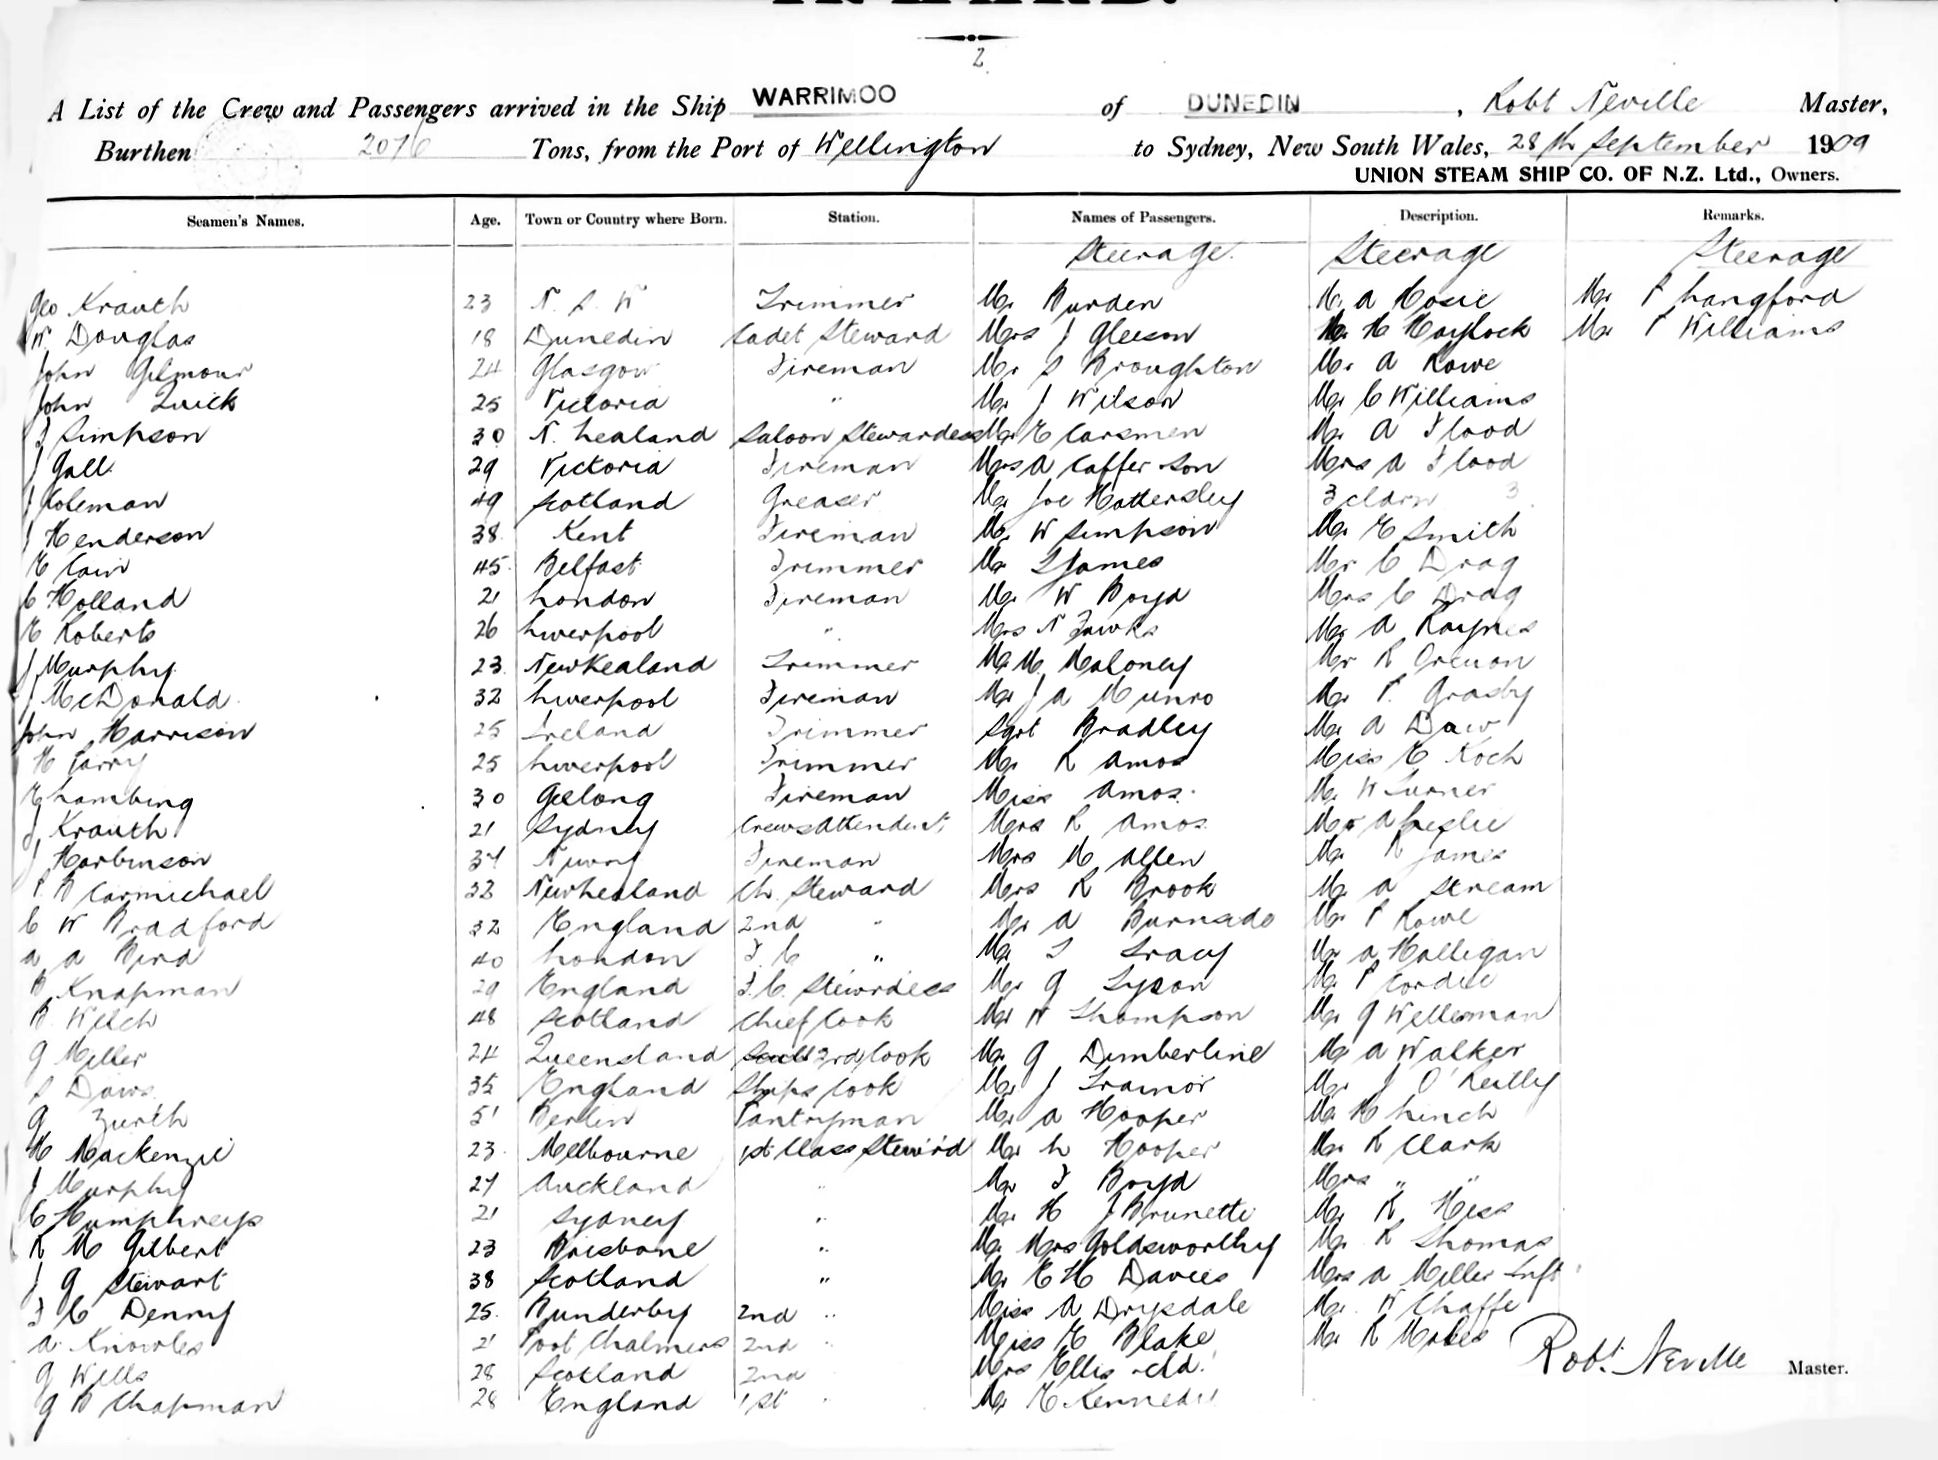 2
A List of the Crew and Passengers arrived in the Ship WARRIMOO of DUNEDIN, Robt Neville Master,
Burthen 2076 Tons, from the Port of Wellington to Sydney, New South Wales, 28th September 1909
UNION STEAM SHIP CO. OF N.Z. Ltd., Owners.
Seamen's Names. Age. Town or Country where Born. Station. Names of Passengers. Description. Remarks.
Steerage. Steerage Steerage
Geo Krauth 23 N. S. W Trimmer Mr Burden Mr A Hosie Mr P Langford
W Douglas 18 Dunedin Cadet Steward Mrs J Gleeson Mr H Haylock Mr P Williams
John Gilmour 24 Glasgow Fireman Mr S Broughton Mr A Rowe
John Quick 25 Victoria " Mr J Wilson Mr C Williams
Simpson 30 N. Zealand Saloon Stewardess Mr E Carsmen Mr A Flood
J Gall. 29 Victoria Fireman Mrs A Caffer Son Mrs A Flood
J Coleman 49 Scotland Greaser Mr Joe Hattersley 3 cldrn 3
J Henderson 38 Kent Fireman Mr W Simpson Mr E Smith
E Cain 45 Belfast Trimmer Mr James Mr C Drag
C Holland 21 London Fireman Mr W Boyd Mrs C Drag
E Roberts 26 Liverpool " Mrs N Fawks Mr A Raynes
J Murphy 23 New Zealand Trimmer Mr M. Maloney Mr R
J McDonald 32 Liverpool Fireman Mr J A Munro Mr P. Grasby
John Harrison 25 Ireland Trimmer Sgrt Bradley Mr A Daw
H Parry 25 Liverpool Trimmer Mr R Amos Miss E Koch
E Lambing 30 Geelong Fireman Miss Amos. Mr W Turner
J Krauth 21 Sydney Crews Attendent Mrs R Amos Mr A Leslie
J Harbinson 37 Newry Fireman Mrs M Allen Mr R James
P B Carmichael 32 New Zealand Ch. Steward Mrs R Brook Mr A Stream
C W Bradford 32 England 2nd " Mr A Burnside Mr P Rowe
A A Bird 40 London F. C " Mr T Tracy Mr A Halligan
B Knapman 29 England F. C. Stewardess Mr G Tyson Mr P Cordie
R Welch 48 Scotland Chief Cook Mr W Thompson Mr G Welleman
G Miller 24 Queensland 3rd Cook Mr G Dimberline Mr A Walker
S Daws 35 England Ships Cook Mr J Trainor Mr J O'Reilly
G Zurth 51 Berlin Pantryman Mr A Hooper Mr H Linch
M Mackenzie 23 Melbourne 1st Class Stew'r'd Mr L Hooper Mr R Clark
J Murphy 27 Auckland " Mr F Boyd Mrs " "
C Humphreys 21 Sydney " Mr H J Brunette Mr R Hess
R M Gilbert 23 Brisbane " Mr Mrs Goldsworthy Mr R Thomas
J G Stewart 38 Scotland " Mr E H Davies Mrs A Miller Inft
F C Denny 25. Bunderby 2nd " Miss A Drysdale Mr W Chaffe
A Knowles 21 Port Chalmers 2nd " Miss E Blake Mr R
G Wills 28 Scotland 2nd Mrs Ellis cld. Robt. Neville Master.
G B Chapman 28 England 1st " Mr E Kennedy